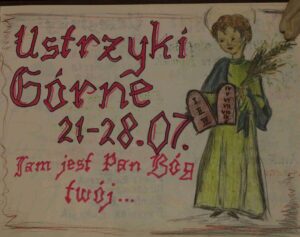 Ustrzyki
Górne
21-28.07.
Jam jest Pan Bóg
twój...
I
II
III